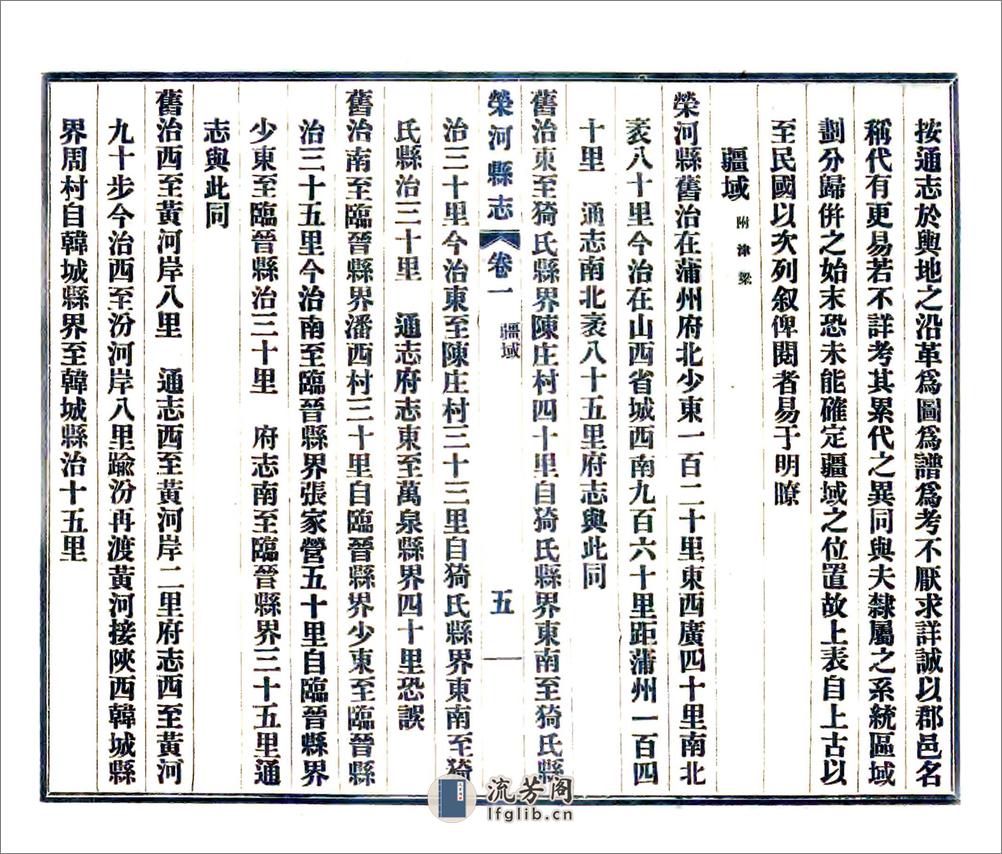 按通志於輿地之沿革爲圖爲譜爲考不厭求詳誠以郡邑名
稱代有更易若不詳考其累代之異同與夫隸屬之系統區域
劃分歸併之始末恐未能確定疆域之位置故上表自上古以
至民國以次列叙俾閱者易于明瞭
疆域 附津梁
榮河縣舊治在蒲州府北少東一百二十里東西廣四十里南北
袤八十里今治在山西省城西南九百六十里距蒲州一百四
十里 通志南北袤八十五里府志與此同
舊治東至猗氏縣界陳庄村四十里自猗氏縣界東南至猗氏縣
榮河縣志 卷一 疆域 五
治三十里今治東至陳庄村三十三里自猗氏縣界東南至猗
氏縣治三十里 通志府志東至萬泉縣界四十里恐誤
舊治南至臨晉縣界潘西村三十里自臨晉縣界少東至臨晉縣
治三十五里今治南至臨晉縣界張家營五十里自臨晉縣界
少東至臨晉縣治三十里 府志南至臨晉縣界三十五里通
志與此同
舊治西至黃河岸八里 通志西至黃河岸二里府志西至黃河
九十步今治西至汾河岸八里踰汾再渡黃河接陝西韓城縣
界周村自韓城縣界至韓城縣治十五里
流芳阁
lfglib.cn